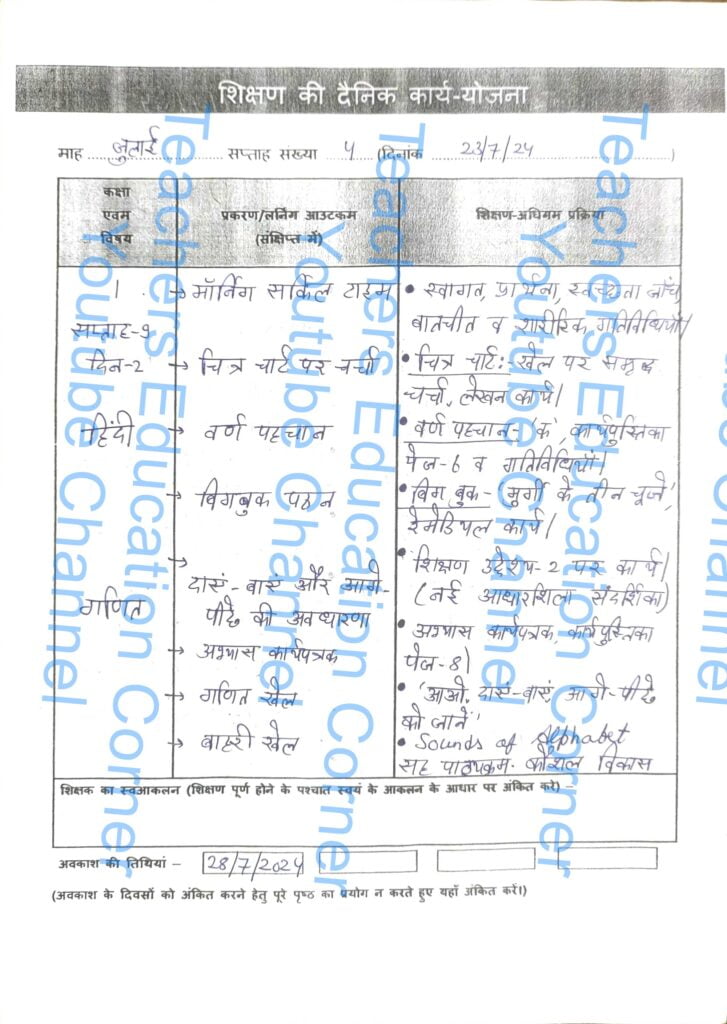 शिक्षण की दैनिक कार्य-योजना
माह जुलाई सप्ताह संख्या 4 (दिनांक 23/7/24)
कक्षा एवम विषय
प्रकरण/लर्निंग आउटकम (संक्षिप्त में)
शिक्षण-अधिगम प्रक्रिया
1
सप्ताह-9
दिन-2
हिंदी
गणित
→ मॉर्निंग सार्किल टाइम
→ चित्र चार्ट पर चर्चा
→ वर्ण पहचान
→ बिगबुक पठन
→ दाएं-बाएं और आगे-
पीछे की अवधारणा
→ अभ्यास कार्यपत्रक
→ गणित खेल
→ बाहरी खेल
• स्वागत, प्रार्थना, स्वच्छता जाँच,
बातचीत व शारीरिक गतिविधियाँ।
• चित्र चार्ट: खेल पर समृद्ध
चर्चा, लेखन कार्य।
• वर्ण पहचान- 'क', कार्यपुस्तिका
पेज-6 व गतिविधियाँ।
• बिग बुक- 'मुर्गी के तीन चूजे',
रेमेडियल कार्य।
• शिक्षण उद्देश्य-2 पर कार्य।
(नई आधारशिला संदर्शिका)
• अभ्यास कार्यपत्रक, कार्यपुस्तिका
पेज-8।
• 'आओ, दाएं-बाएं, आगे-पीछे
को जानें'
• Sounds of Alphabet
सह पाठ्यक्रम- कौशल विकास
शिक्षक का स्वआकलन (शिक्षण पूर्ण होने के पश्चात स्वयं के आकलन के आधार पर अंकित करे) –
अवकाश की तिथियां – 28/7/2024
(अवकाश के दिवसों को अंकित करने हेतु पूरे पृष्ठ का प्रयोग न करते हुए यहाँ अंकित करें।)
Teachers Education Corner
Youtube Channel
Teachers Education Corner
Youtube Channel
Teachers Education Corner
Youtube Channel